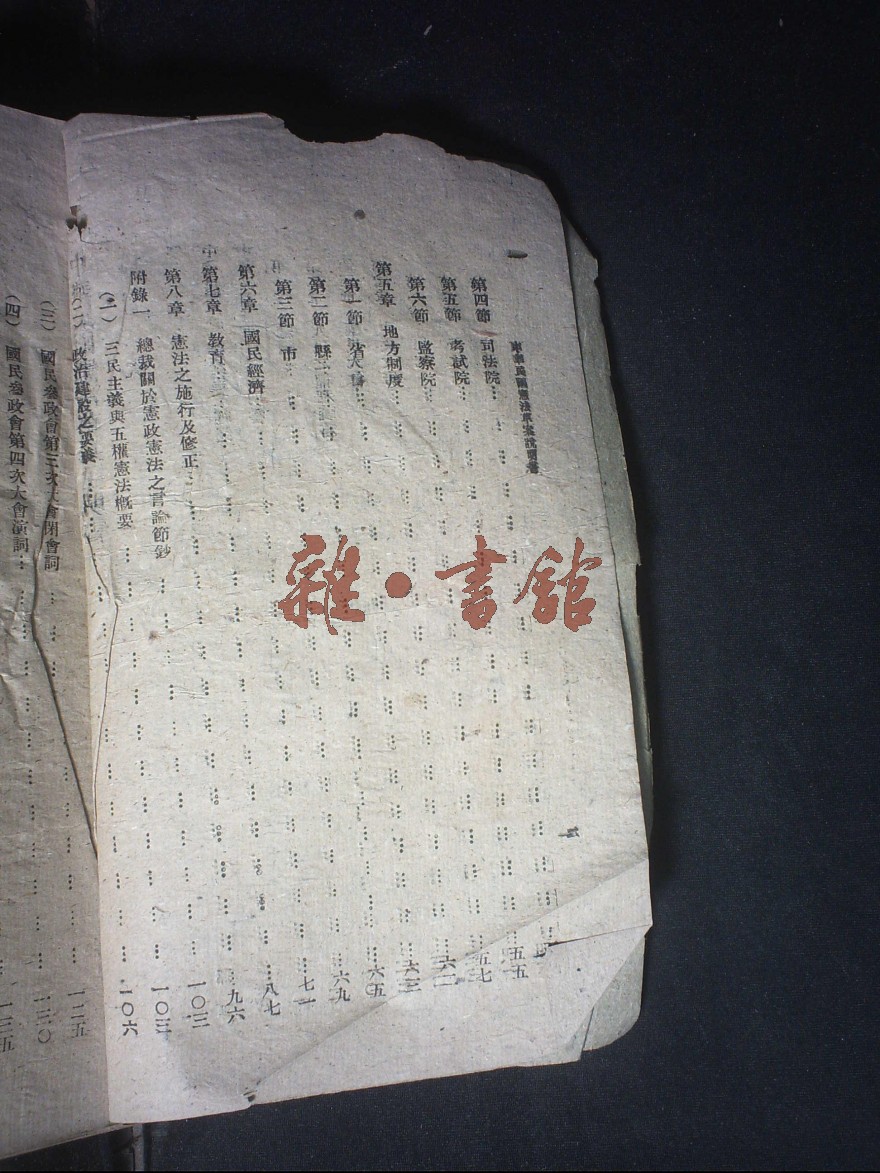 中華民國憲法草案說明書
第四節 司法院 五五
第五節 考試院 五七
第六節 監察院 六二
第五章 地方制度 六三
第一節 省 六五
第二節 縣 六九
第三節 市 七一
第六章 國民經濟 八七
第七章 教育 九六
第八章 憲法之施行及修正 一〇三
附錄一 總裁關於憲政憲法之言論節鈔 一〇三
（一） 三民主義與五權憲法概要 一〇六
（二） 政治建設之要義 一二五
（三） 國民參政會第三次大會閉會詞 一三〇
（四） 國民參政會第四次大會演詞 一三五
雜·書館